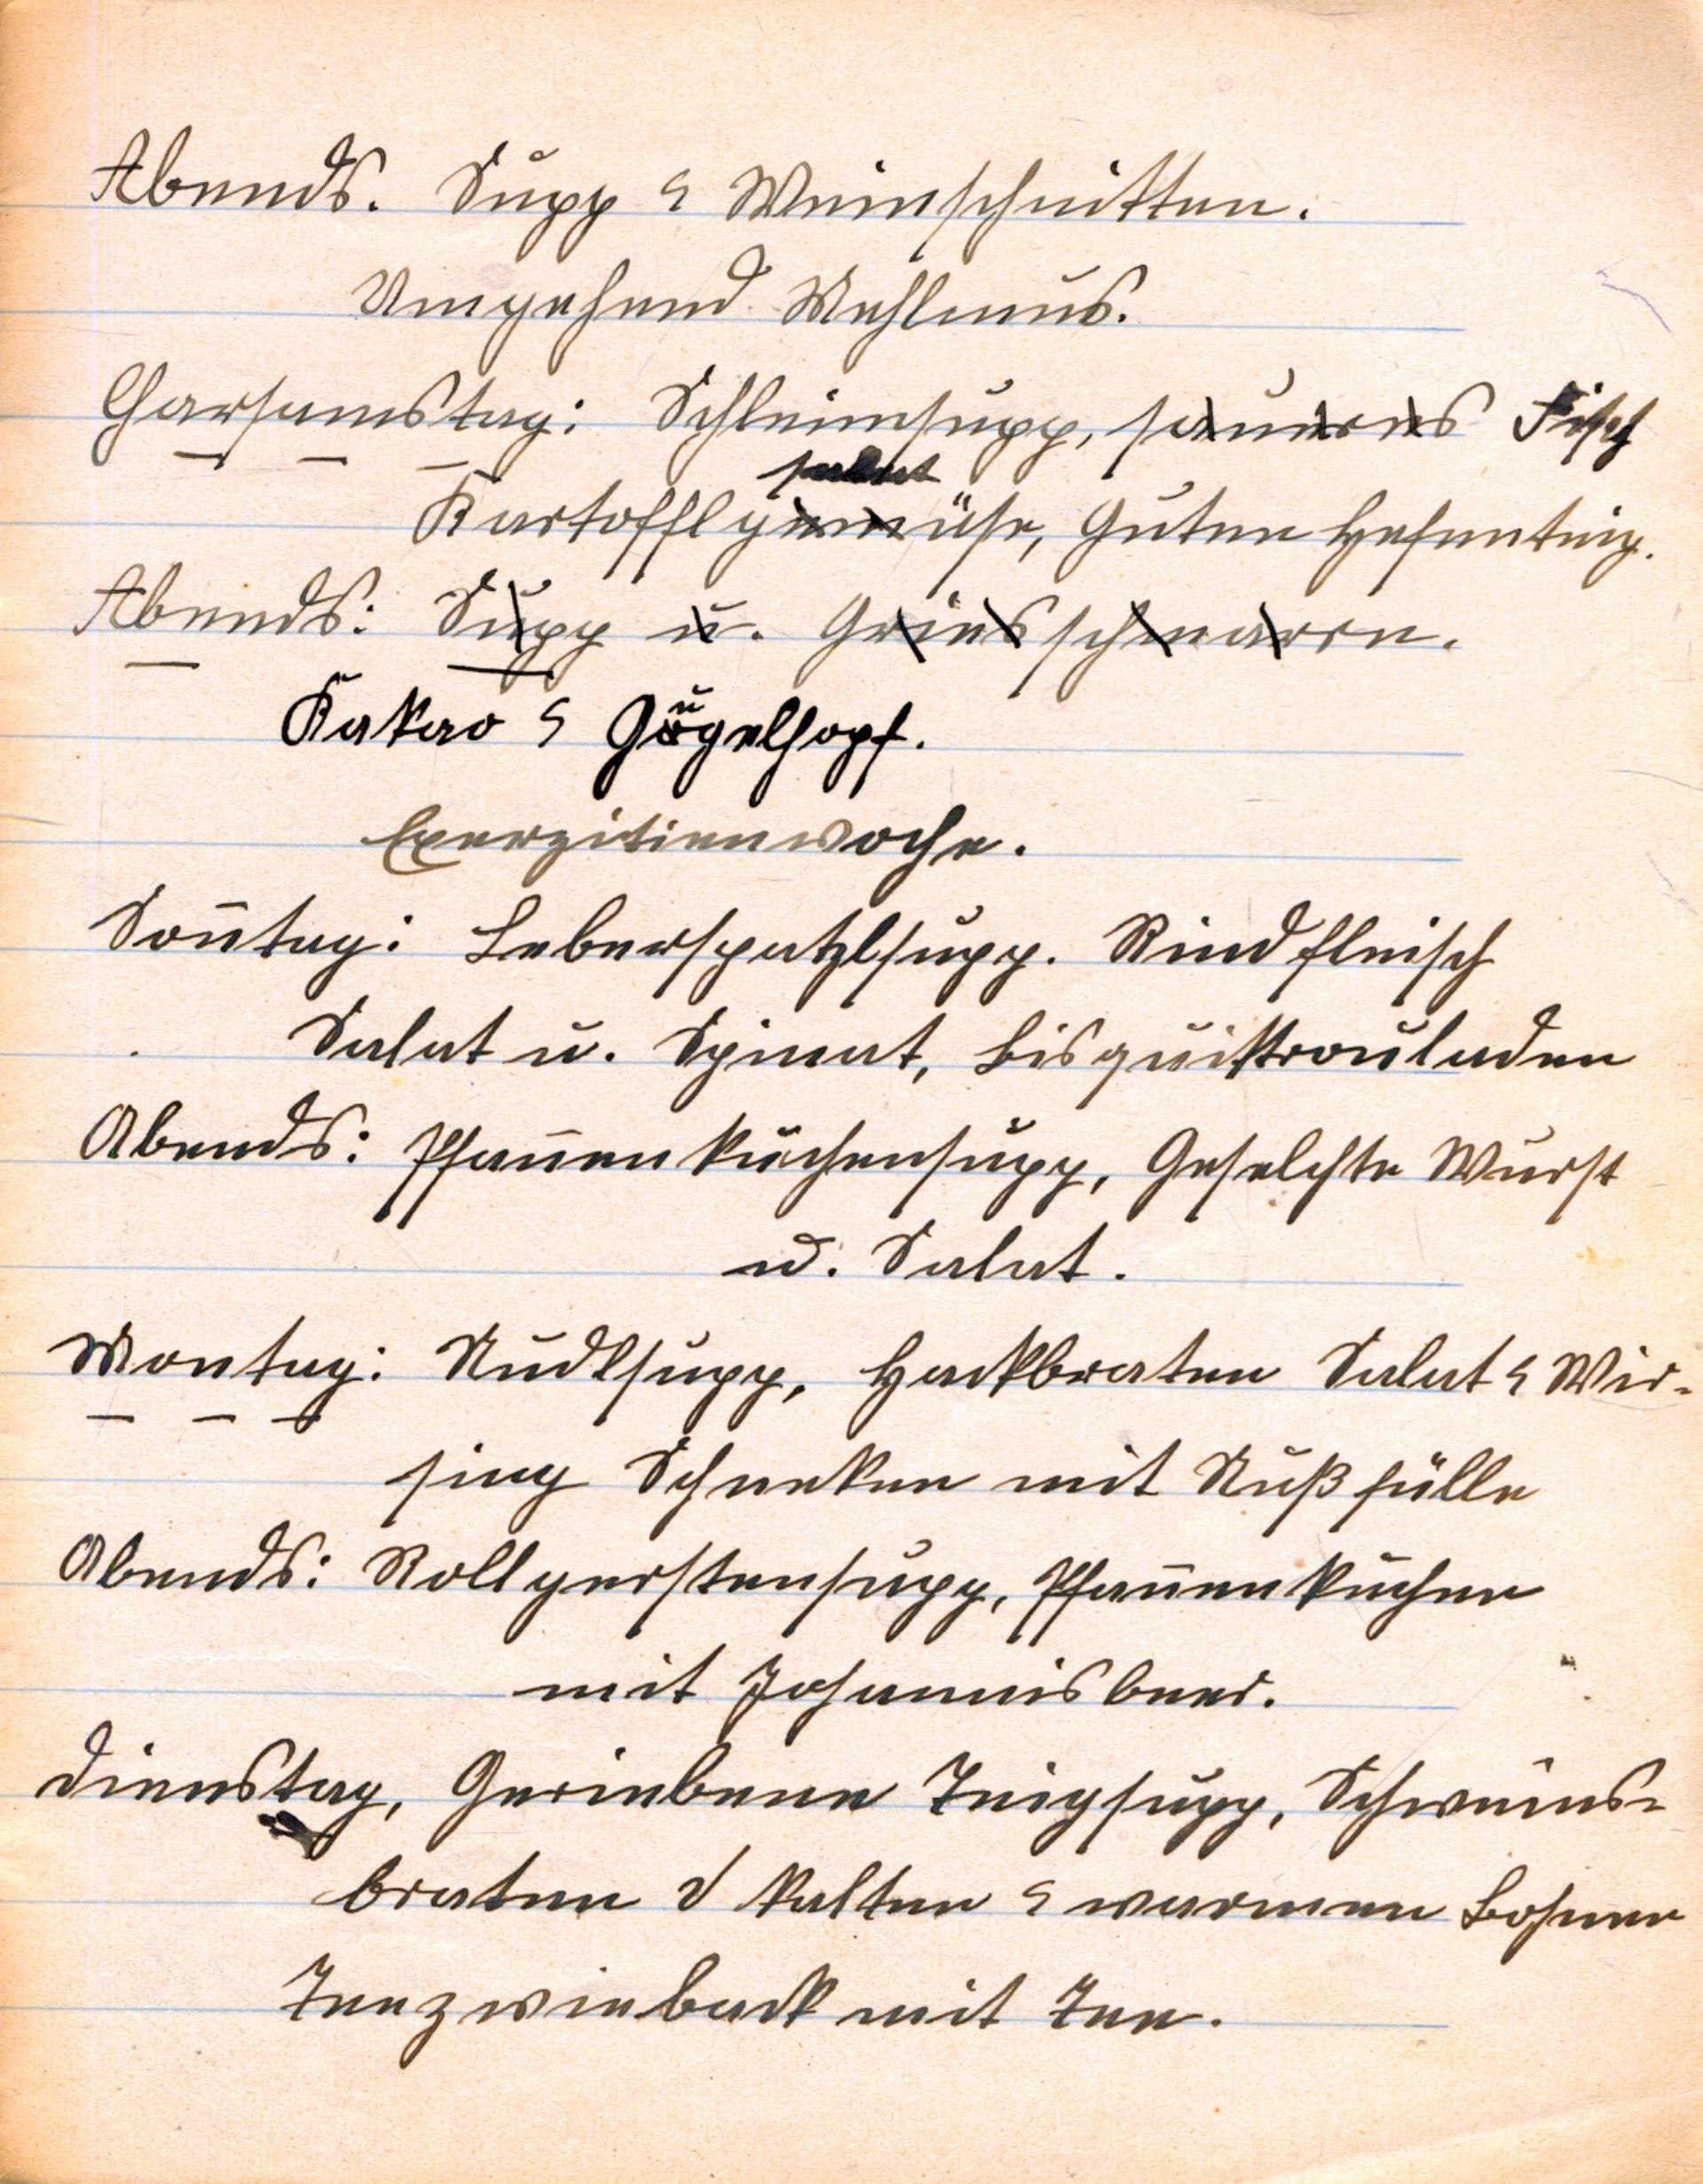 Abends. Supp & Weinschnitten.
Umgehend Mehlmus.
Charsamstag: Schleimsupp, saueres Fisch
salat
Kartofflgemüse, Guten Hefenteig.
Abends: Supp u. Griesschmarrn.
Kakao & Gugelhopf.
Exerzitienwoche.
Son̄tag: Leberspatzlsupp. Rindfleisch
Salat u. Spinat, Bisquittrouladen
Abends: Pfan̄enkuchensupp, Geselchte Wurst
u. Salat.
Montag: Nudlsupp, Hackbraten Salat & Wir-
sing Schneken mit Nußfülle
Abends: Rollgerstensupp, Pfan̄enkuchen
mit Johannisbeer.
Dienstag, Geriebene Teigsupp, Schweins-
braten kalten & warmen Bohnen
Teezwieback mit Tee.